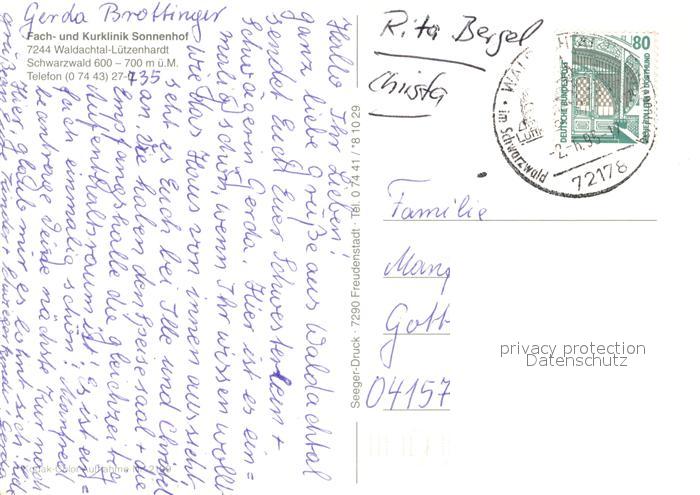 Gerda Brottinger
Fach- und Kurklinik Sonnenhof
7244 Waldachtal-Lützenhardt
Schwarzwald 600 – 700 m ü.M.
Telefon (0 74 43) 27-735
Hallo Ihr Lieben!
ganz liebe Grüße aus Waldachtal
sendet Euch Euer Schwesterlein +
Schwägerin Gerda. Hier ist es ein=
malig schön, wenn Ihr wissen wollt
wie das Haus von innen aussieht,
seht es Euch bei Ille und Christel
an. Wir haben den Speisesaal + die
Empfangshalle die gleichzeitig
Aufenthaltsraum ist, es ist ein=
fach einmalig schön. Manfred
beantrage Deine nächste Kur noch
Hier, glaub mir es lohnt sich
Seeger-Druck · 7290 Freudenstadt · Tel. 0 74 41 / *8 10 29
Rita Bergel
Christa
80
DEUTSCHE BUNDESPOST
WALDACHTAL
im Schwarzwald
72178
Familie
Mang
Gott
04157
privacy protection
Datenschutz